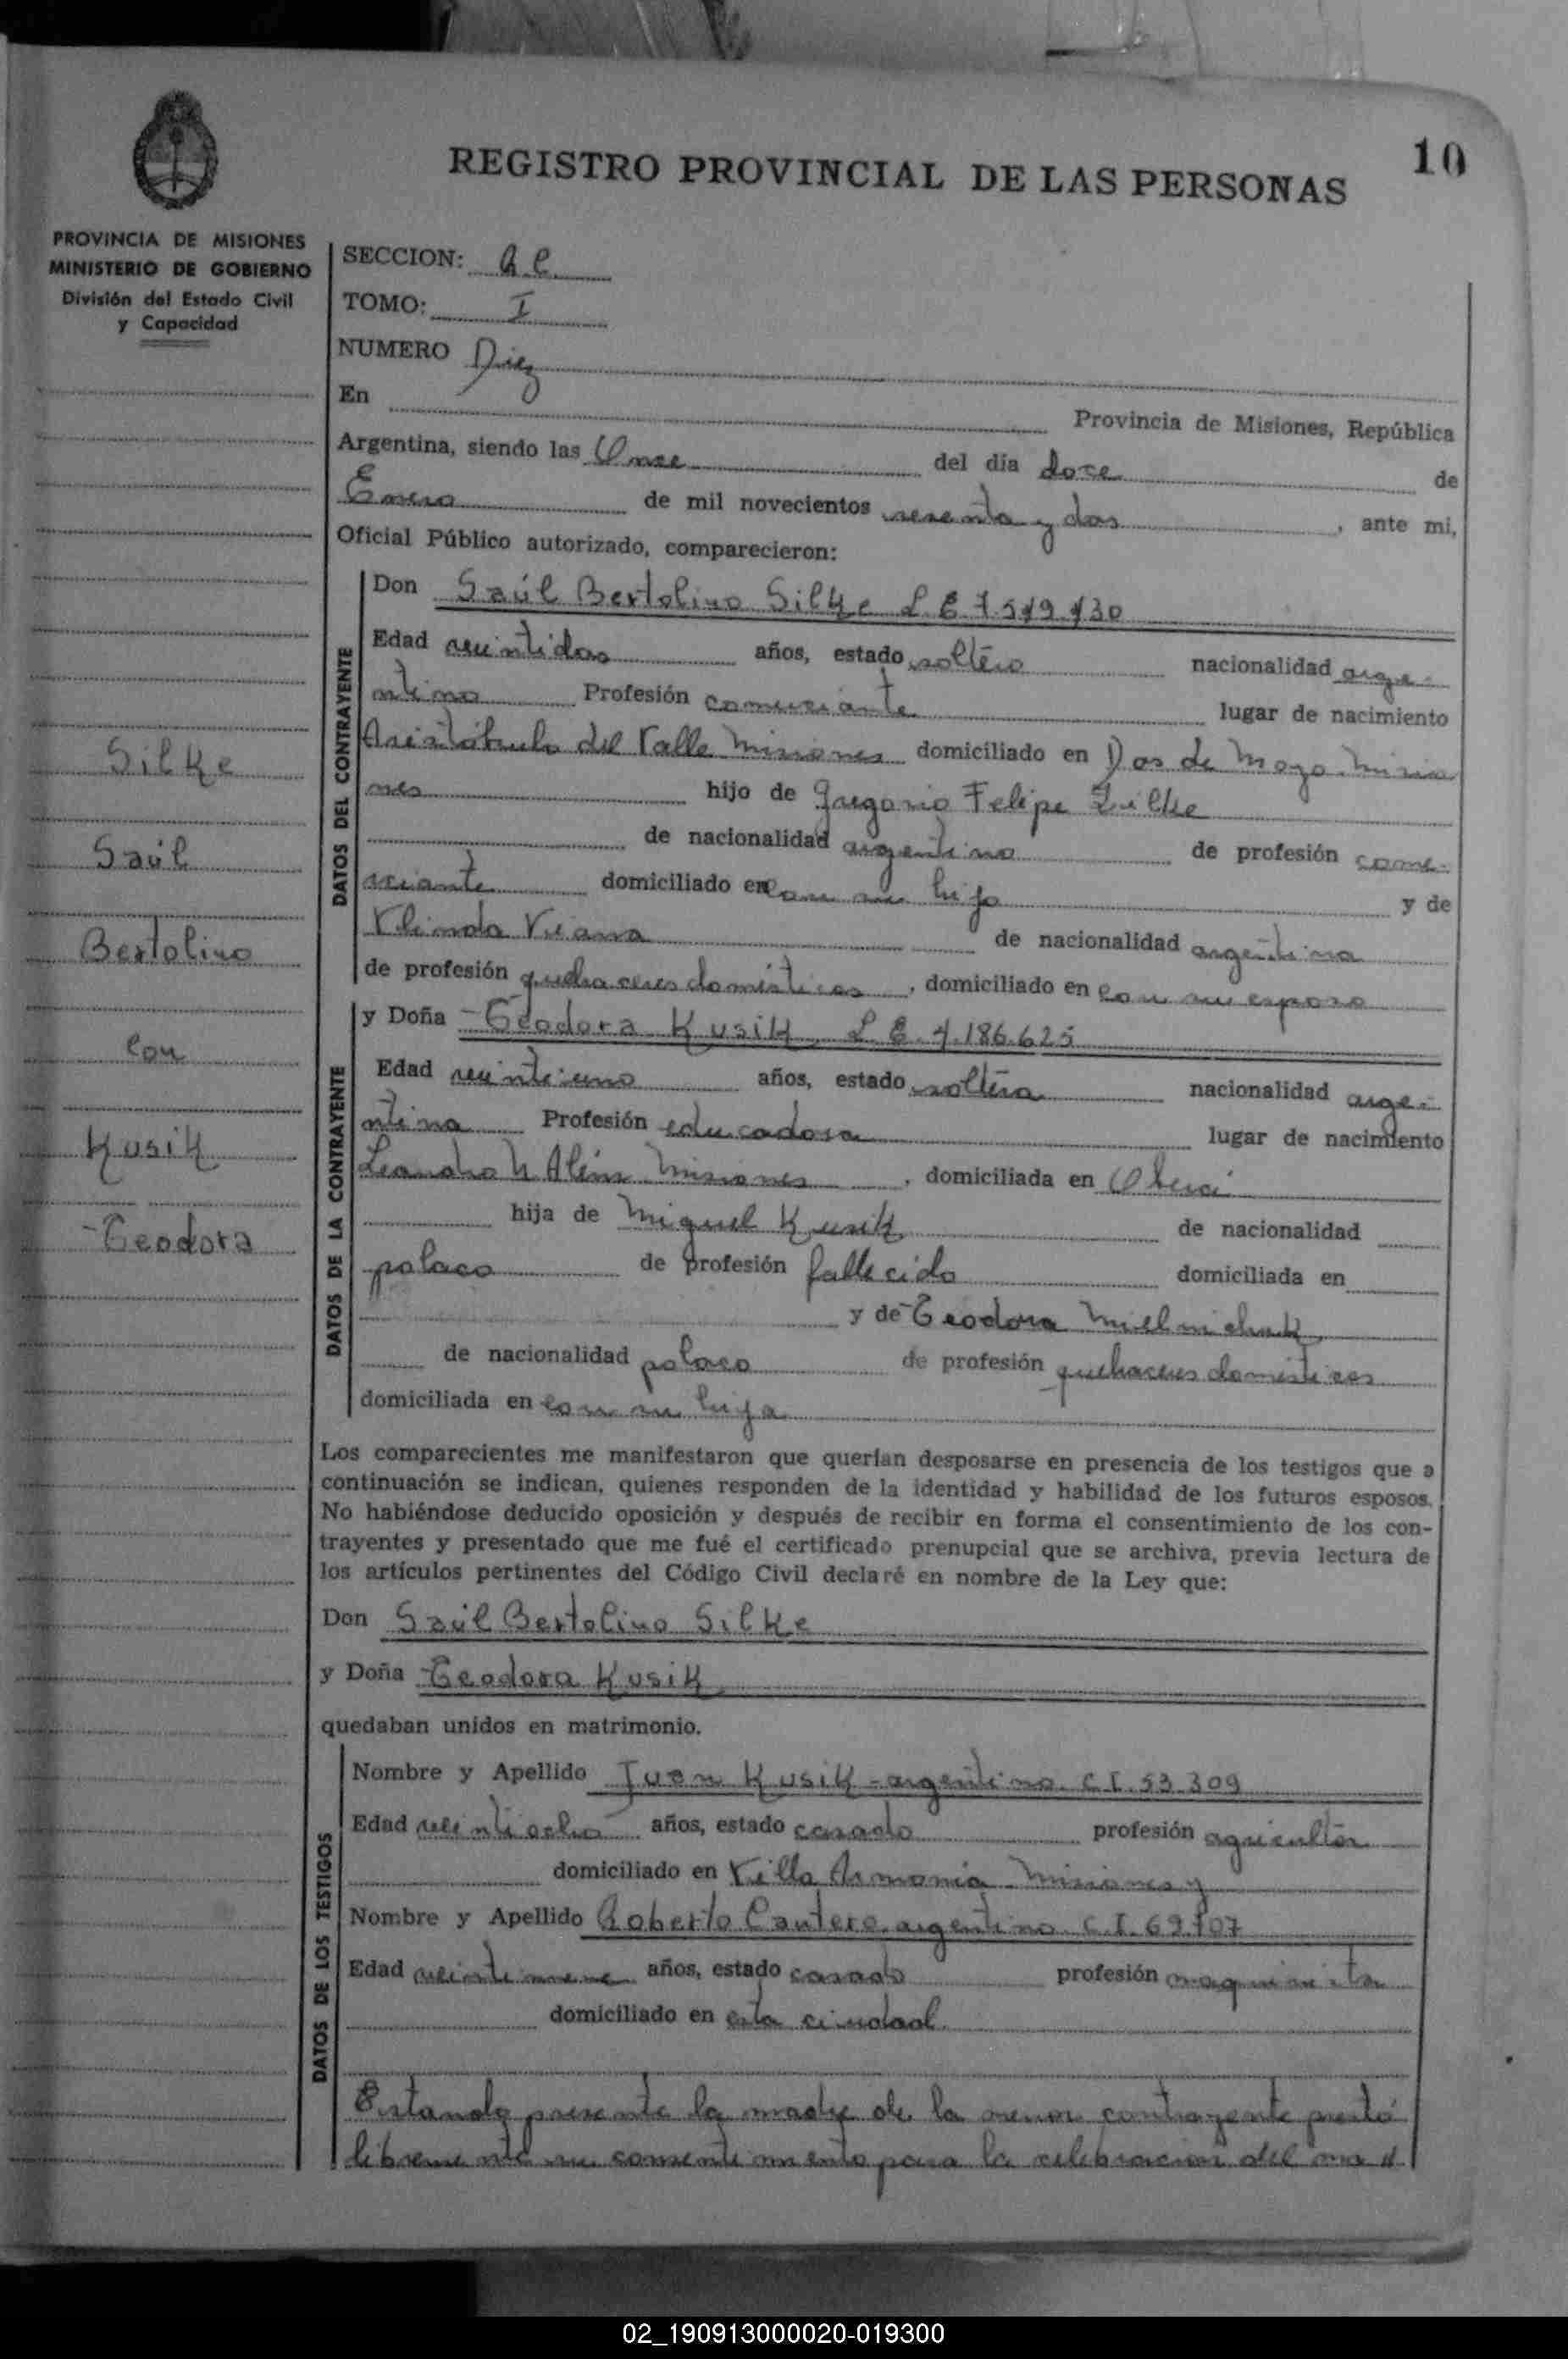 REGISTRO PROVINCIAL DE LAS PERSONAS
10
PROVINCIA DE MISIONES
MINISTERIO DE GOBIERNO
División del Estado Civil
y Capacidad
Silke
Saúl
Bertolino
con
Kusik
Teodora
SECCION: A.C.
TOMO: I
NUMERO Diez
En Provincia de Misiones, República
Argentina, siendo las Once del día doce de
Enero de mil novecientos sesenta y dos, ante mi,
Oficial Público autorizado, comparecieron:
DATOS DEL CONTRAYENTE
Don Saúl Bertolino Silke L.E.
Edad veintidos años, estado soltero nacionalidad arge-
ntino Profesión comerciante lugar de nacimiento
Aristóbulo del Valle Misiones domiciliado en Dos de Mayo Misio
nes hijo de Gregorio Felipe Zilke
de nacionalidad argentino de profesión come-
rciante domiciliado en con su hijo y de
de nacionalidad argentina
de profesión quehaceres domésticos, domiciliado en con su esposo
DATOS DE LA CONTRAYENTE
y Doña Teodora Kusik L.E. 4.186.625
Edad veintiuno años, estado soltera nacionalidad arge-
ntina Profesión educadora lugar de nacimiento
Leandro N Alem Misiones, domiciliada en Oberá
hija de Miguel Kusik de nacionalidad
polaco de profesión fallecido domiciliada en
y de Teodora Mielnichuk
de nacionalidad polaco de profesión quehaceres domésticos
domiciliada en con su hija
Los comparecientes me manifestaron que querían desposarse en presencia de los testigos que a
continuación se indican, quienes responden de la identidad y habilidad de los futuros esposos.
No habiéndose deducido oposición y después de recibir en forma el consentimiento de los con-
trayentes y presentado que me fué el certificado prenupcial que se archiva, previa lectura de
los artículos pertinentes del Código Civil declaré en nombre de la Ley que:
Don Saúl Bertolino Silke
y Doña Teodora Kusik
quedaban unidos en matrimonio.
DATOS DE LOS TESTIGOS
Nombre y Apellido Juan Kusik - argentino. C.I. 53.309
Edad veintiocho años, estado casado profesión agricultor
domiciliado en Villa Armonia Misiones y
Nombre y Apellido Roberto Cantero argentino C.I. 69.707
Edad veintinueve años, estado casado profesión maquinista
domiciliado en esta ciudad.
Estando presente la madre de la menor contrayente prestó
libremente su consentimiento para la celebracion del ma //
02_190913000020-019300